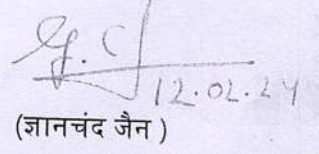 G. C
12.02.24
(ज्ञानचंद जैन )